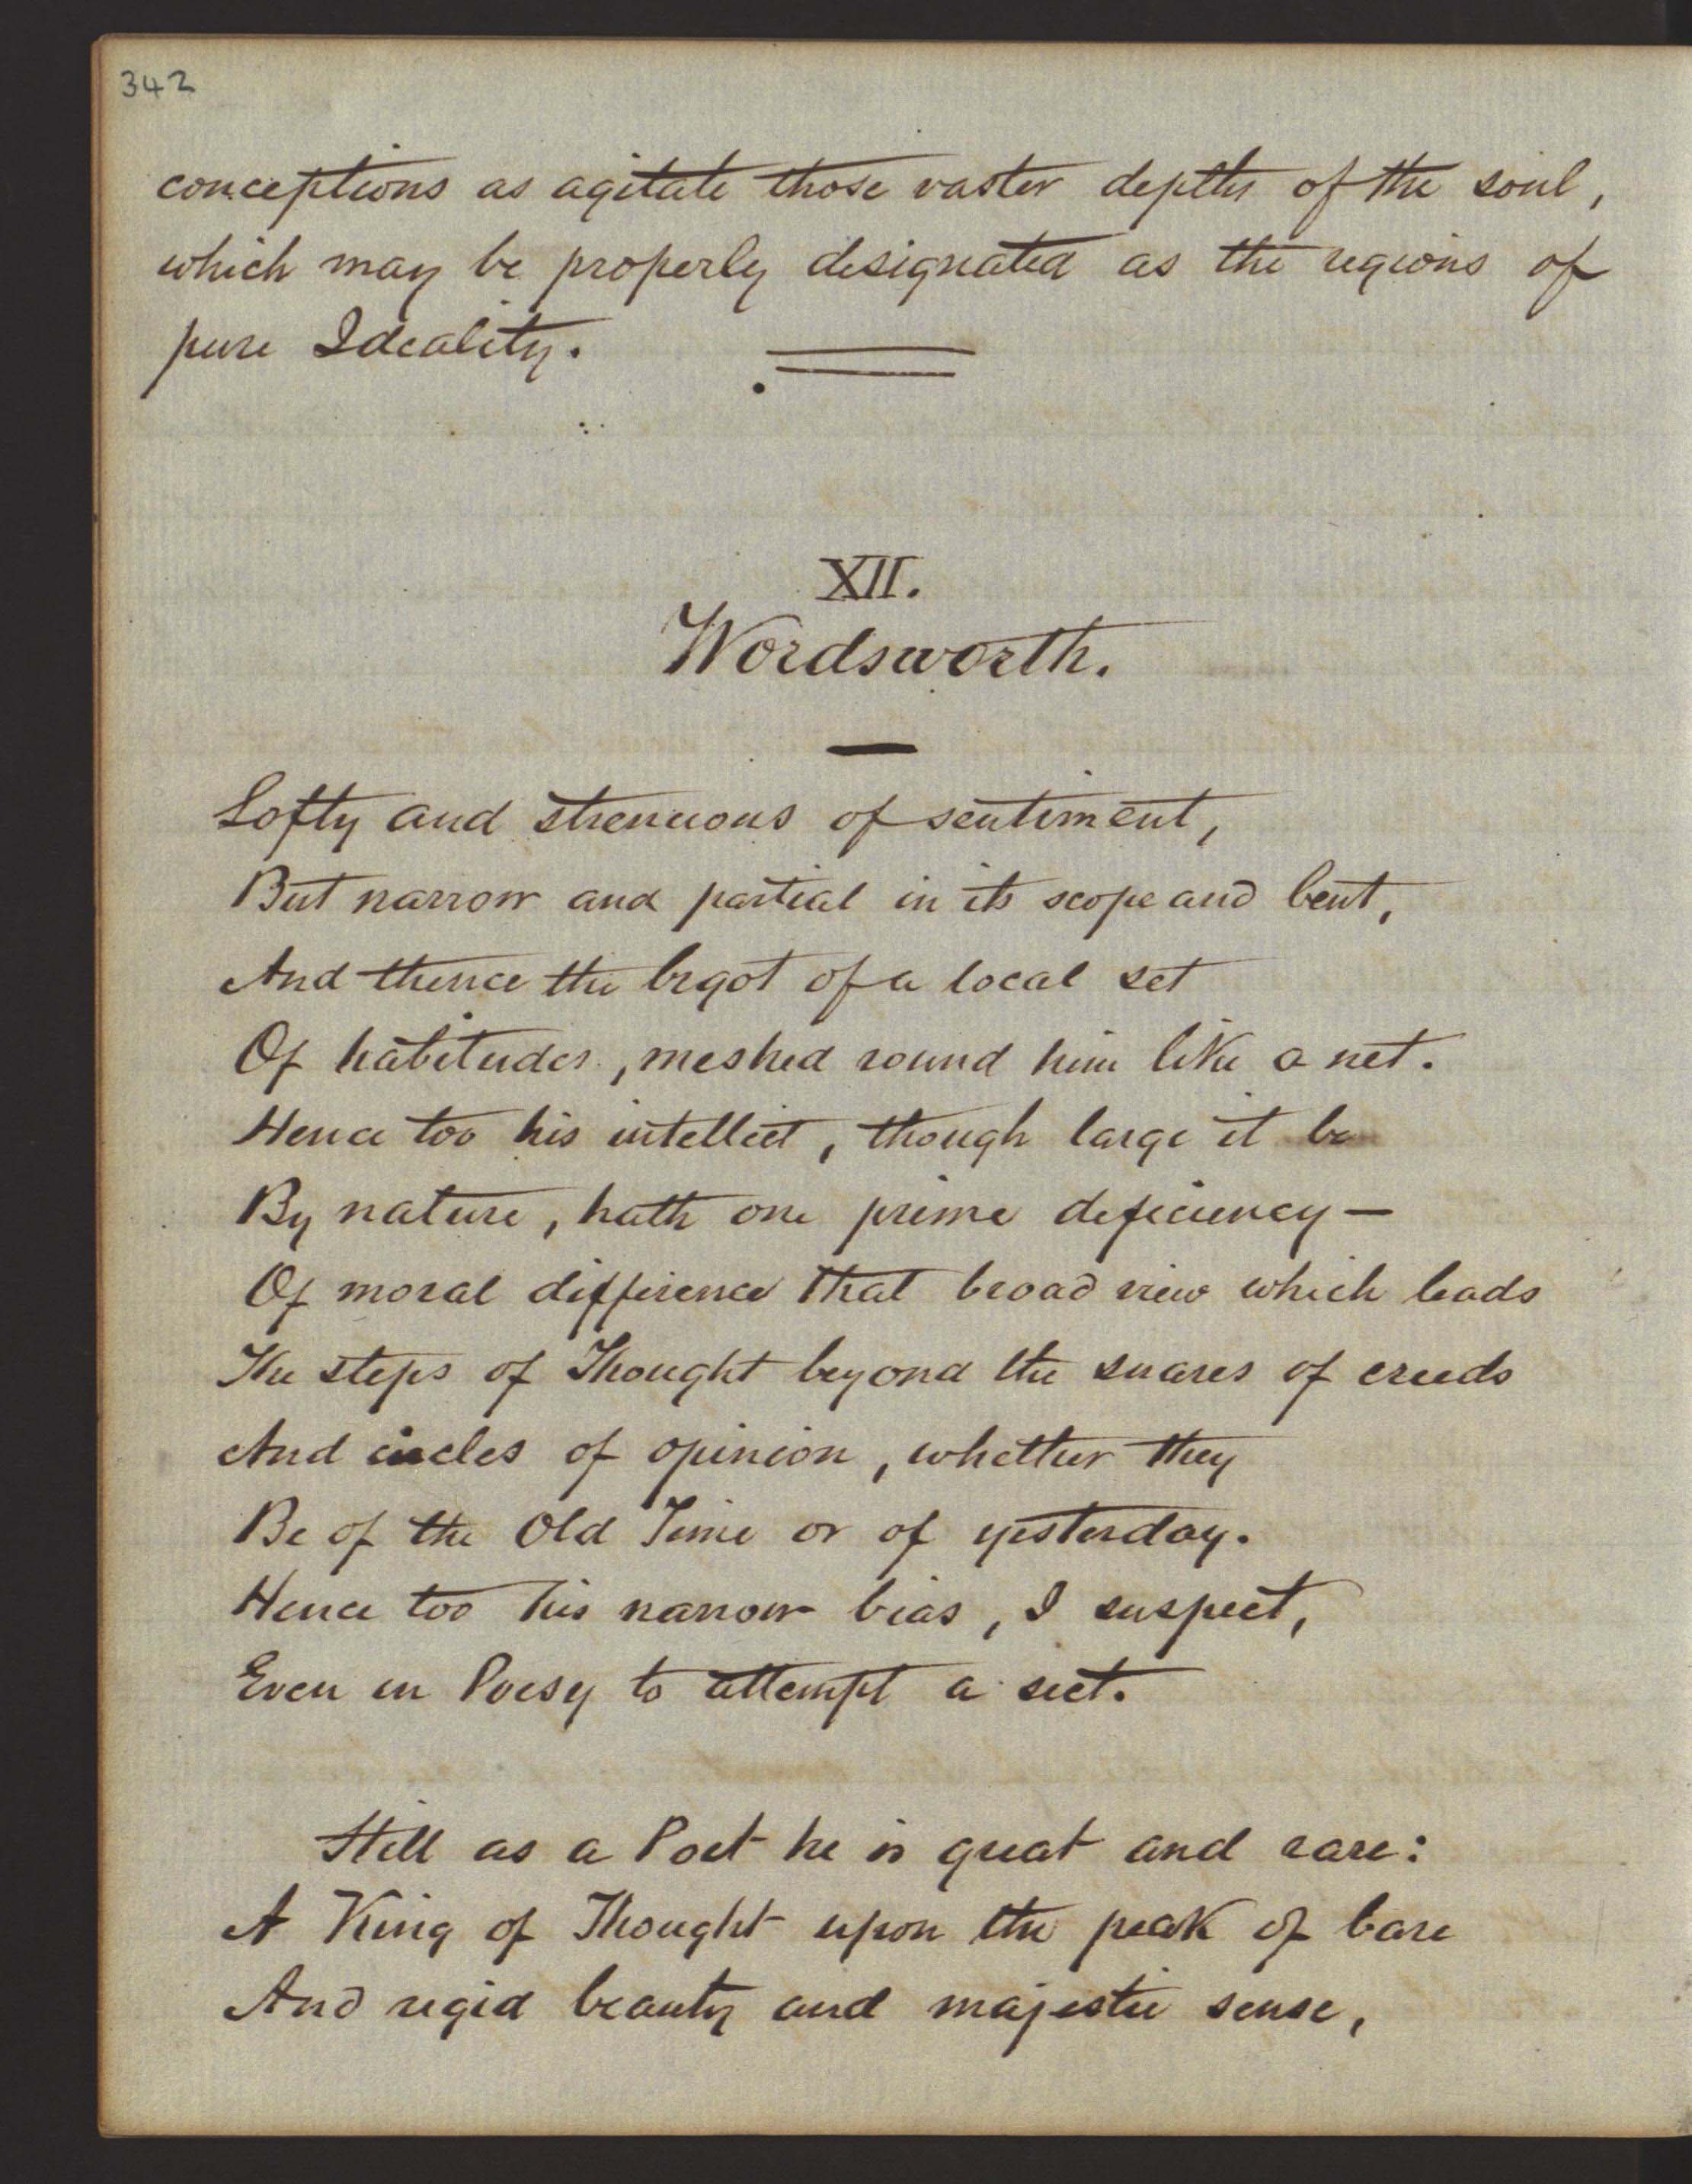 342
conceptions as agitate those vaster depths of the soul,
which may be properly designated as the regions of
pure Ideality.
XII.
Wordsworth.
Lofty and strenuous of sentiment,
But narrow and partial in its scope and bent,
And thence the bigot of a local set
Of habitudes, meshed round him like a net.
Hence too his intellect, though large it be
By nature, hath one prime deficiency—
Of moral difference that broad view which leads
The steps of Thought beyond the snares of creeds
And circles of opinion, whether they
Be of the Old Time or of yesterday.
Hence too his narrow bias, I suspect,
Even in Poesy to attempt a sect.
Still as a Poet he is great and rare:
A King of Thought upon the peak of bare
And rigid beauty and majestic sense,